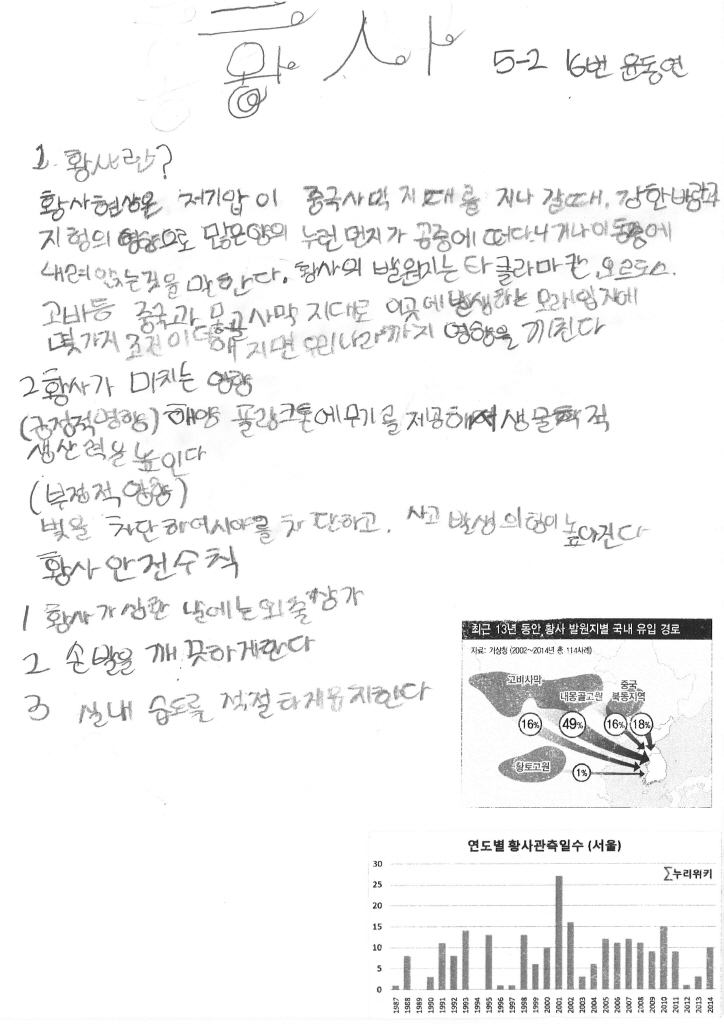 황사
5-2 16번 윤동연
1. 황사란?
황사현상은 저기압이 중국사막 지대를 지나 갈때, 강한바람과
지형의 영향으로 많은양의 누런먼지가 공중에 떠다니거나 이동중에
내려 앉는것을 말한다. 황사의 발원지는 타클라마칸, 오르도스.
고바등 중국과 몽골사막 지대로 이곳에 발생하는 모래입자에
몇가지 조건이 더해 지면 우리나라까지 영향을 끼친다
2 황사가 미치는 영향
(긍정적영향) 해양 플랑크톤에 무기를 제공해서 생물학적
생산력을 높인다
(부정적 영향)
빛을 차단하여시야를 차단하고. 사고 발생 의험이 높아진다
황사 안전수칙
1 황사가 심한 날에는 외출삼가
2 손발을 깨끗하게한다
3 실내 습도를 적절하게유지한다
최근 13년 동안, 황사 발원지별 국내 유입 경로
자료: 기상청 (2002~2014년 총 114사례)
고비사막
내몽골고원
중국
북동지역
16%
49%
16%
18%
황토고원
1%
연도별 황사관측일수 (서울)
∑누리위키
30
25
20
15
10
5
0
1987 1988 1989 1990 1991 1992 1993 1994 1995 1996 1997 1998 1999 2000 2001 2002 2003 2004 2005 2006 2007 2008 2009 2010 2011 2012 2013 2014